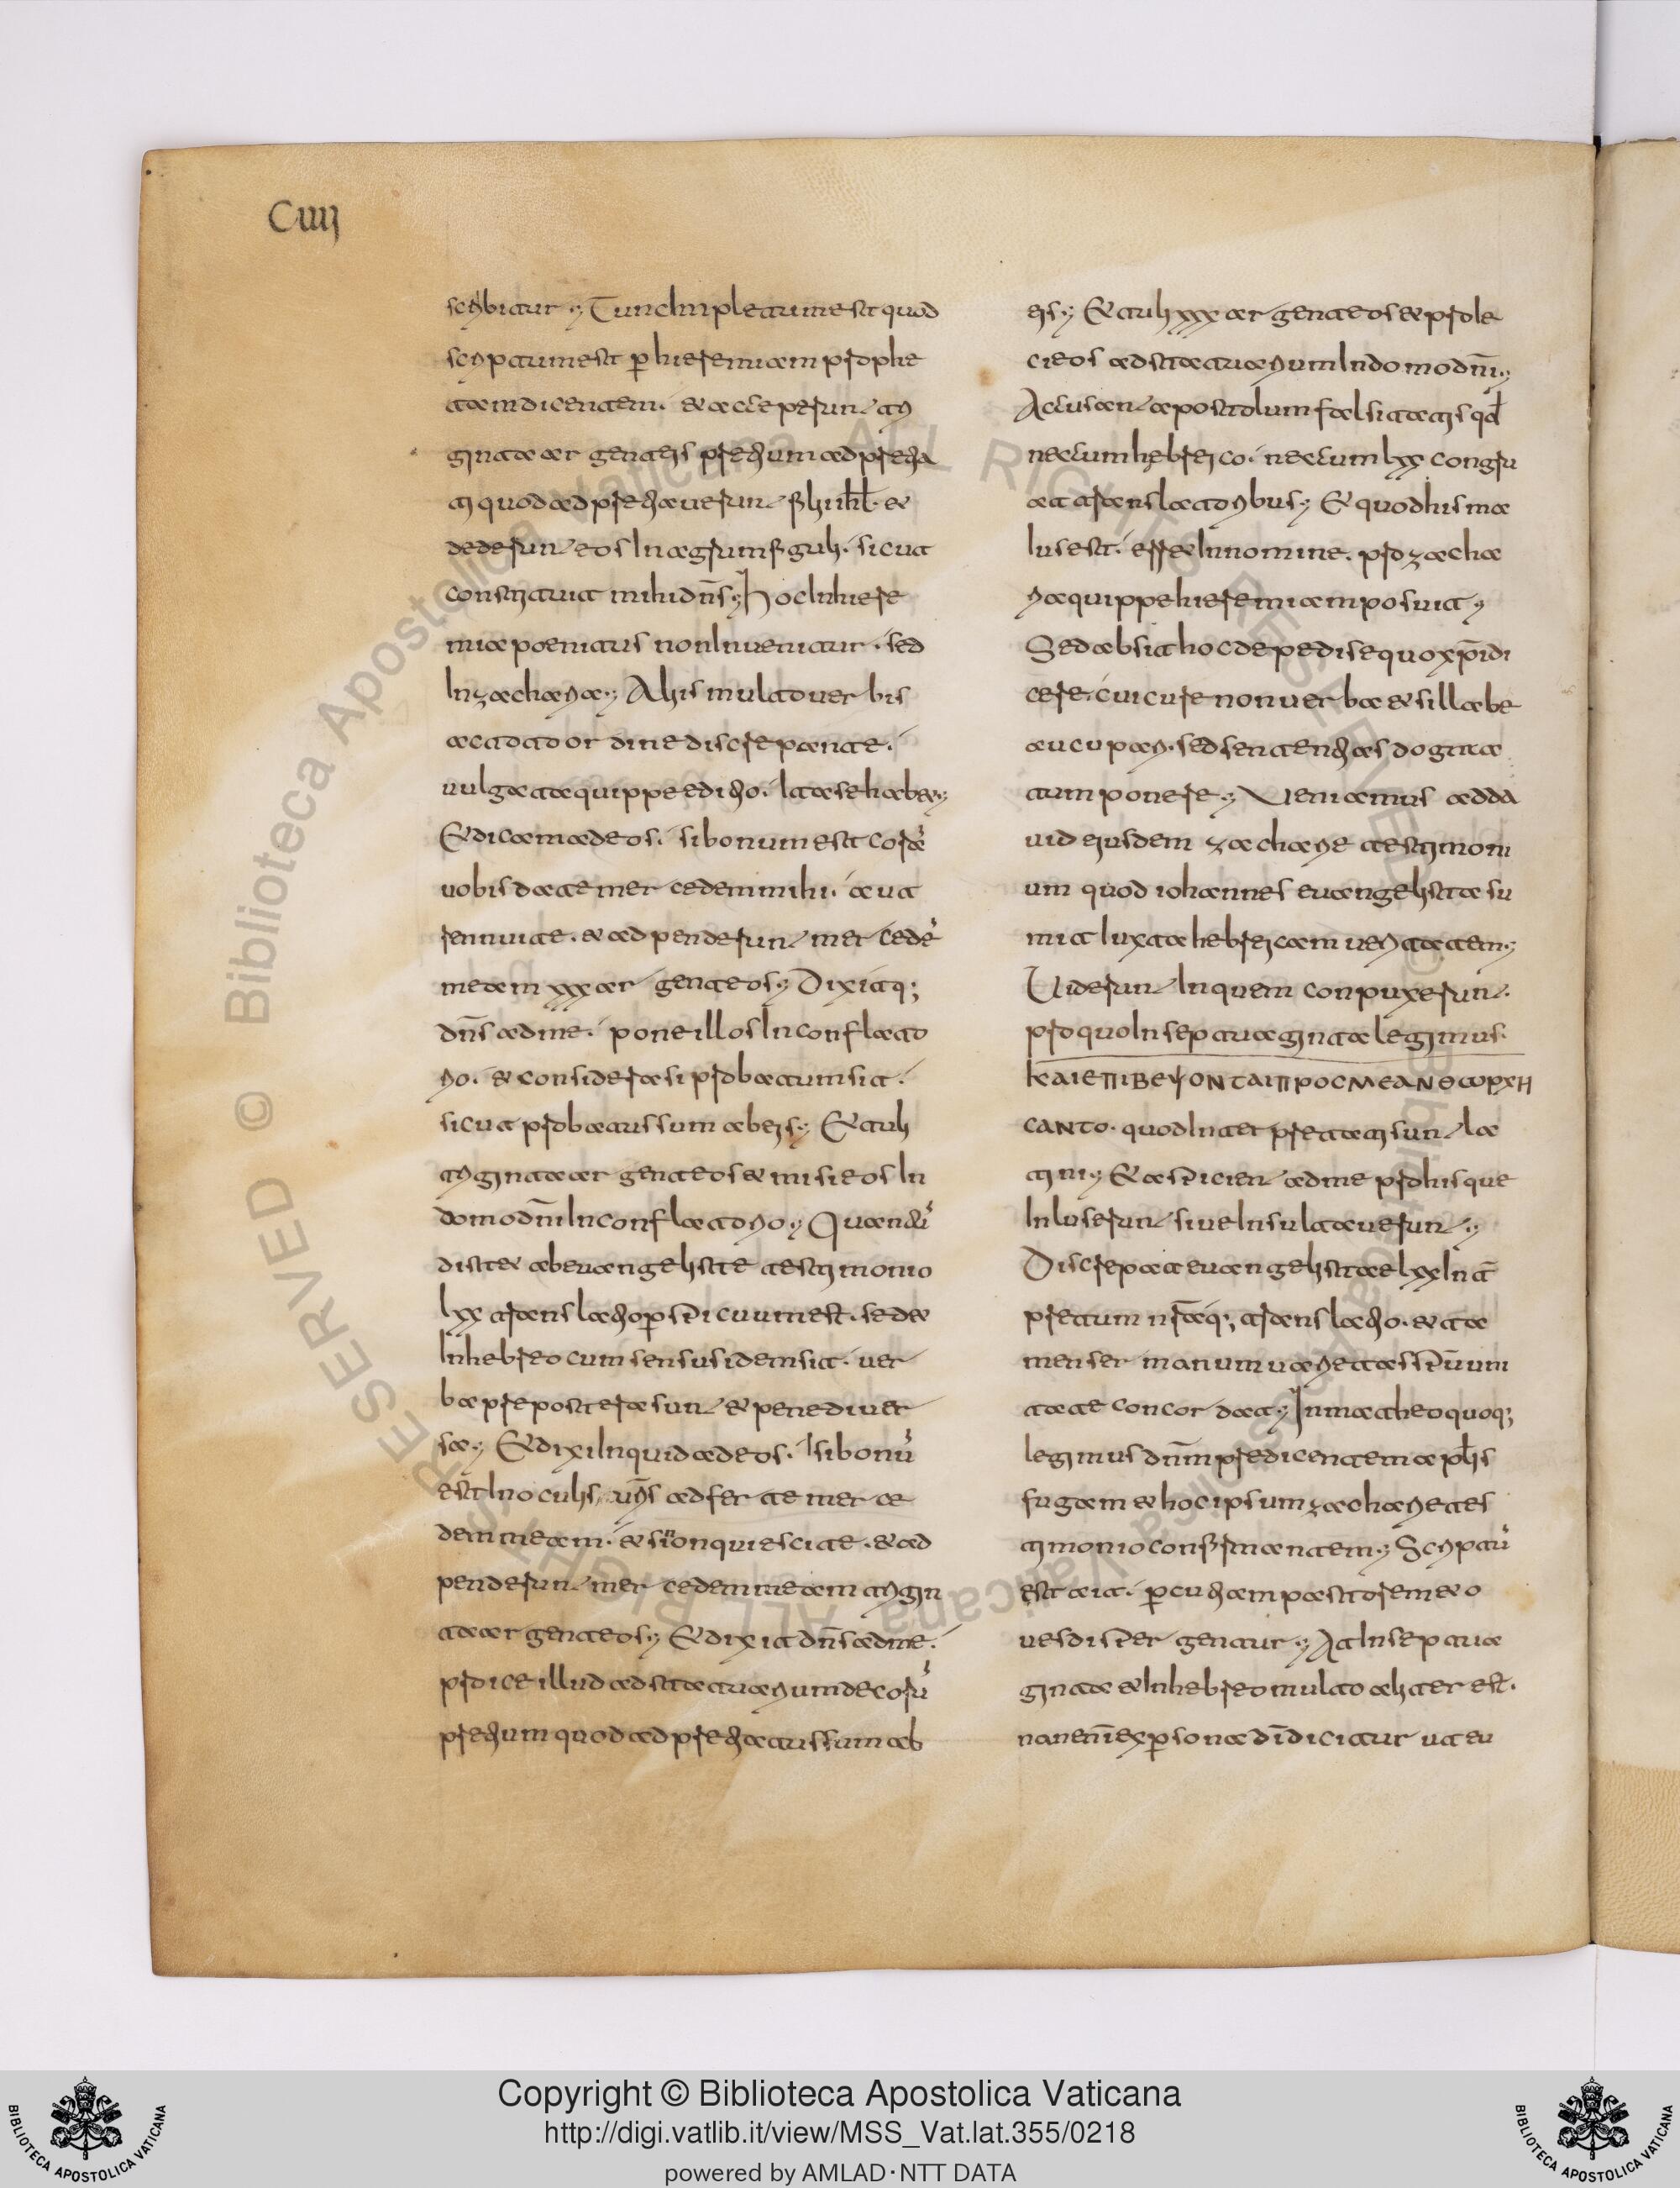 Ciiij
scribitur; Tunc Impletum est quod
scriptum est p̱ hieremiam prophe
tam dicentem. et acceperunt tri
ginta argenteis pretium adpretia
ti quod adpretiaverunt filii isrl̄. et
dederunt eos In agrum figuli. sicut
constituit mihi dn̄s; Hoc In hiere
mia penitus non Invenitur. sed
In zacharia; Aliis multo verbis
ac toto ordine discrepante.
vulgata quippe editio. Ita se habet;
Et dicam ad eos. si bonum est corā
vobis date mercedem mihi. aut
rennuite. et adpenderunt mercedē
meam xxx argenteos; Dixitq;
dn̄s ad me. pone illos In conflato
rio. et considera si probatum sit.
sicut probatus sum ab eis; Et tuli
triginta argenteos et misi eos In
domo dn̄i In conflatorio; Quantū
distet ab evangeliste testimonio
lxx translatio p̱spicuum est. sed et
In hebreo cum sensus idem sit. ver
ba prepostera sunt et pene diver
sa; Et dixi Inquid ad eos. si bonū
est In oculis vr̄is adferte merce
dem meam. et si non quiescite. et ad
penderunt mercedem meam trigin
ta argenteos; Et dixit dn̄s ad me.
proice illud ad statuarium decorū
pretium quod adpretiatus sum ab
eis; Et tuli xxx argenteos et proie
ci eos ad statuarium In domo dn̄i;
Accusant apostolum falsitatis qd̄
nec cum hebreico. nec cum lxx congru
at translatoribus; Et quod his ma
ius est. erret In nomine. pro zacha
ria quippe hieremiam posuit;
Sed absit hoc de pedisequo xp̄i di
cere. cui cure non verba et sillabe
aucupari. sed sententias dogma
tum ponere; Veniamus ad da
vid eiusdem zacharie testimoni
um quod iohannes evangelista su
mit luxta hebreicam veritatem;
Viderunt In quem conpuxerunt.
pro quo In septuaginta legimus.
ΚΑΙ ΕΠΙΒΕΨΟΝΤΑΙ ΠΡΟC ΜΕ ΑΝΘ ωΡΧΗ
CΑΝΤΟ. quod Interpretati sunt la
tini; Et aspicient ad me pro his que
Inluserunt sive Insultaverunt;
Discrepat evangelista et lxx In t̄
pretum nr̄aq; translatio. et ta
men sermonum varietas sp̄u uni
tate concordat; In matheo quoq;
legimus dn̄m predicentem aplis
fugam et hoc ipsum zacharie tes
timonio confirmantem; Scriptū
est ait. p̱cutiam pastorem et o
ves dispergentur; At In septua
ginta et In hebreo multo aliter est.
non enī ex p̱sona dī dicitur ut eu
Copyright © Biblioteca Apostolica Vaticana
http://digi.vatlib.it/view/MSS_Vat.lat.355/0218
powered by AMLAD·NTT DATA